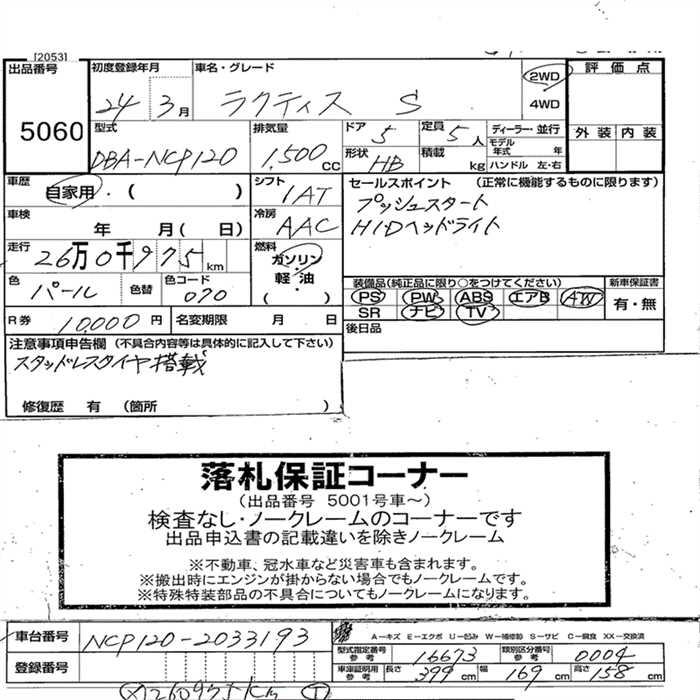 [2053]
出品番号
5060
初度登録年月
24 3月
車名・グレード
ラクティス S
2WD
4WD
評価点
外装 内装
型式
DBA-NCP120
排気量
1,500 CC
ドア 5
定員 5人
形状 HB
積載 kg
ディーラー・並行
モデル年式 年
ハンドル 左・右
車歴
自家用・( )
シフト
IAT
車検
年 月( 日)
冷房
AAC
走行
26万0千975km
燃料
ガソリン・軽油
( )
色
パール
色替
色コード
070
R券 10,000円
名変期限 月 日
セールスポイント (正常に機能するものに限ります)
プッシュスタート
HIDヘッドライト
装備品(純正品に限り○をつけてください)
PS PW ABS エアB AW
SR ナビ TV
新車保証書
有・無
後日品
注意事項申告欄(不具合内容等は具体的に記入して下さい)
スタッドレスタイヤ搭載
修復歴 有 (箇所 )
落札保証コーナー
(出品番号 5001号車〜)
検査なし・ノークレームのコーナーです
出品申込書の記載違いを除きノークレーム
※不動車、冠水車など災害車も含まれます。
※搬出時にエンジンが掛からない場合でもノークレームです。
※特殊特装部品の不具合についてもノークレームになります。
車台番号
NCP120-2033193
登録番号
A−キズ E−エクボ U−凹み W−補修跡 S−サビ C−腐食 XX−交換済
型式指定番号 参考 16673
類別区分番号 参考 0004
車庫証明用 参考 長さ 399cm 幅 169cm 高さ 158cm